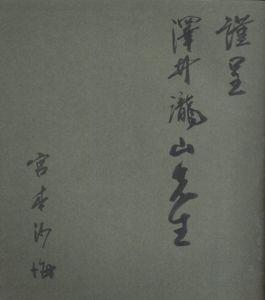 謹呈
澤井瀧山先生
宮本沙海